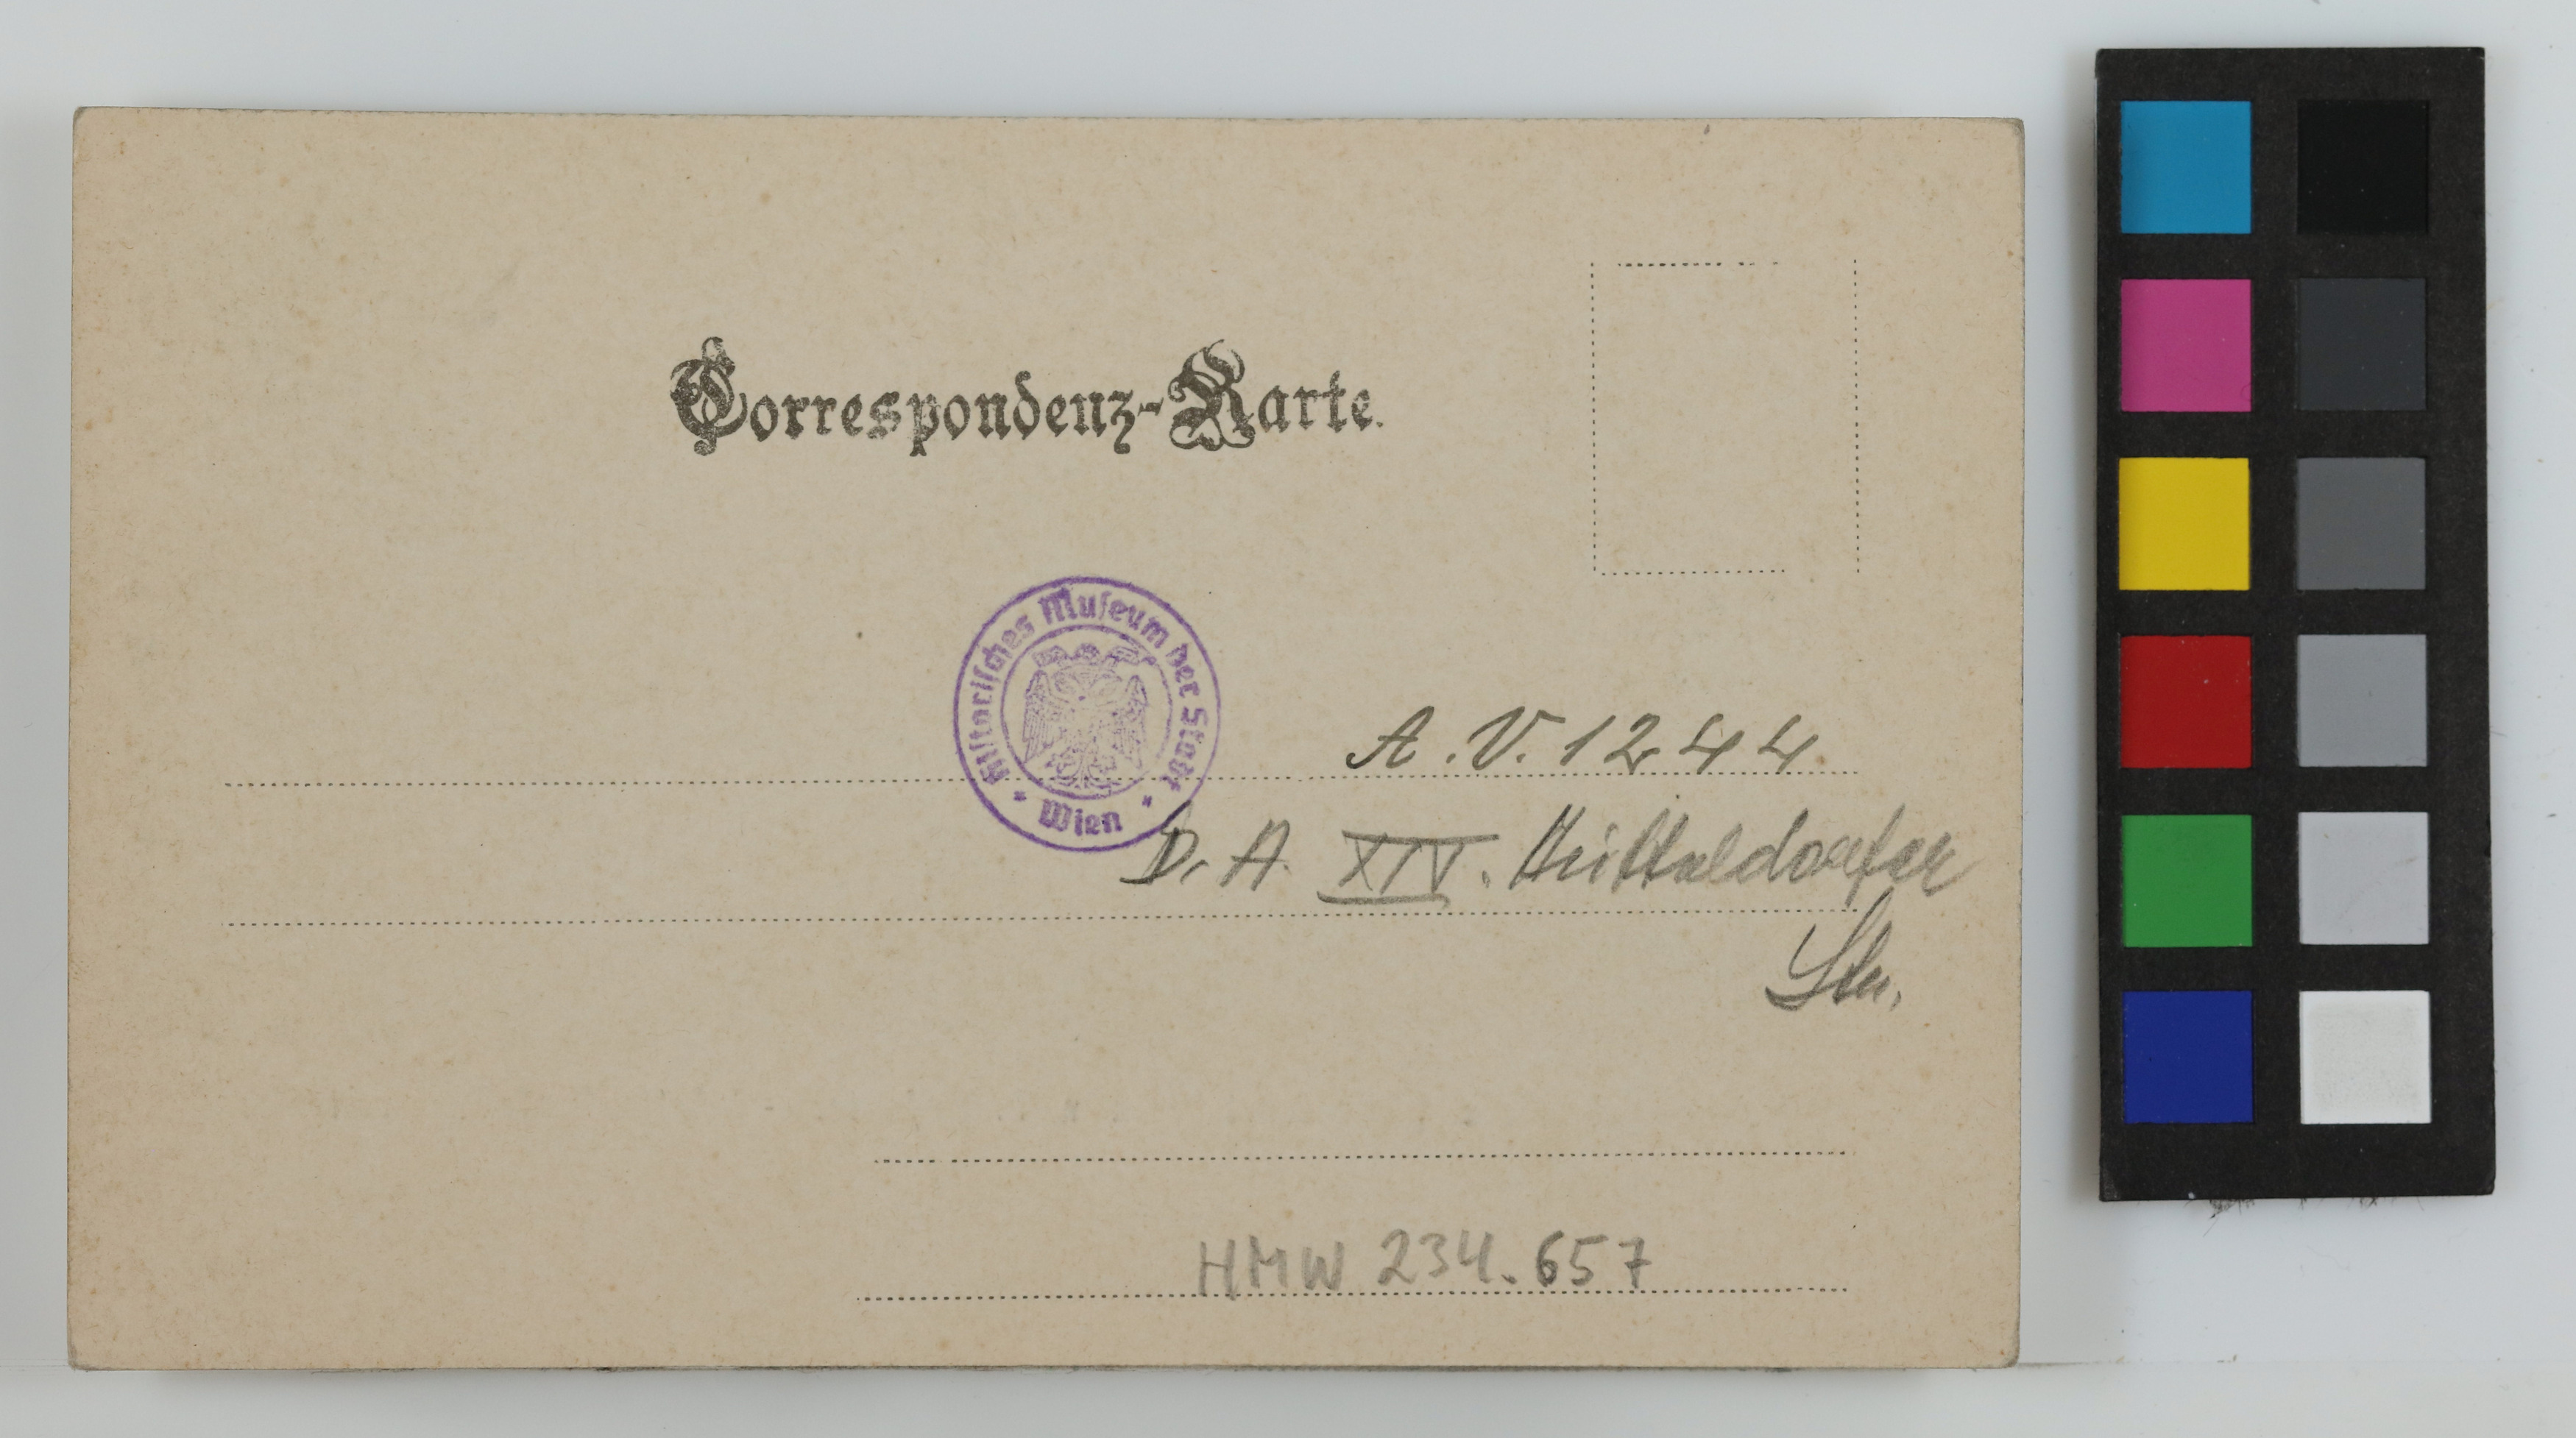 Correspondenz-Karte.
Historisches Museum der Stadt
* Wien *
A.V. 1244
D. A. XIV. Hütteldorfer
Str.
HMW 234.657